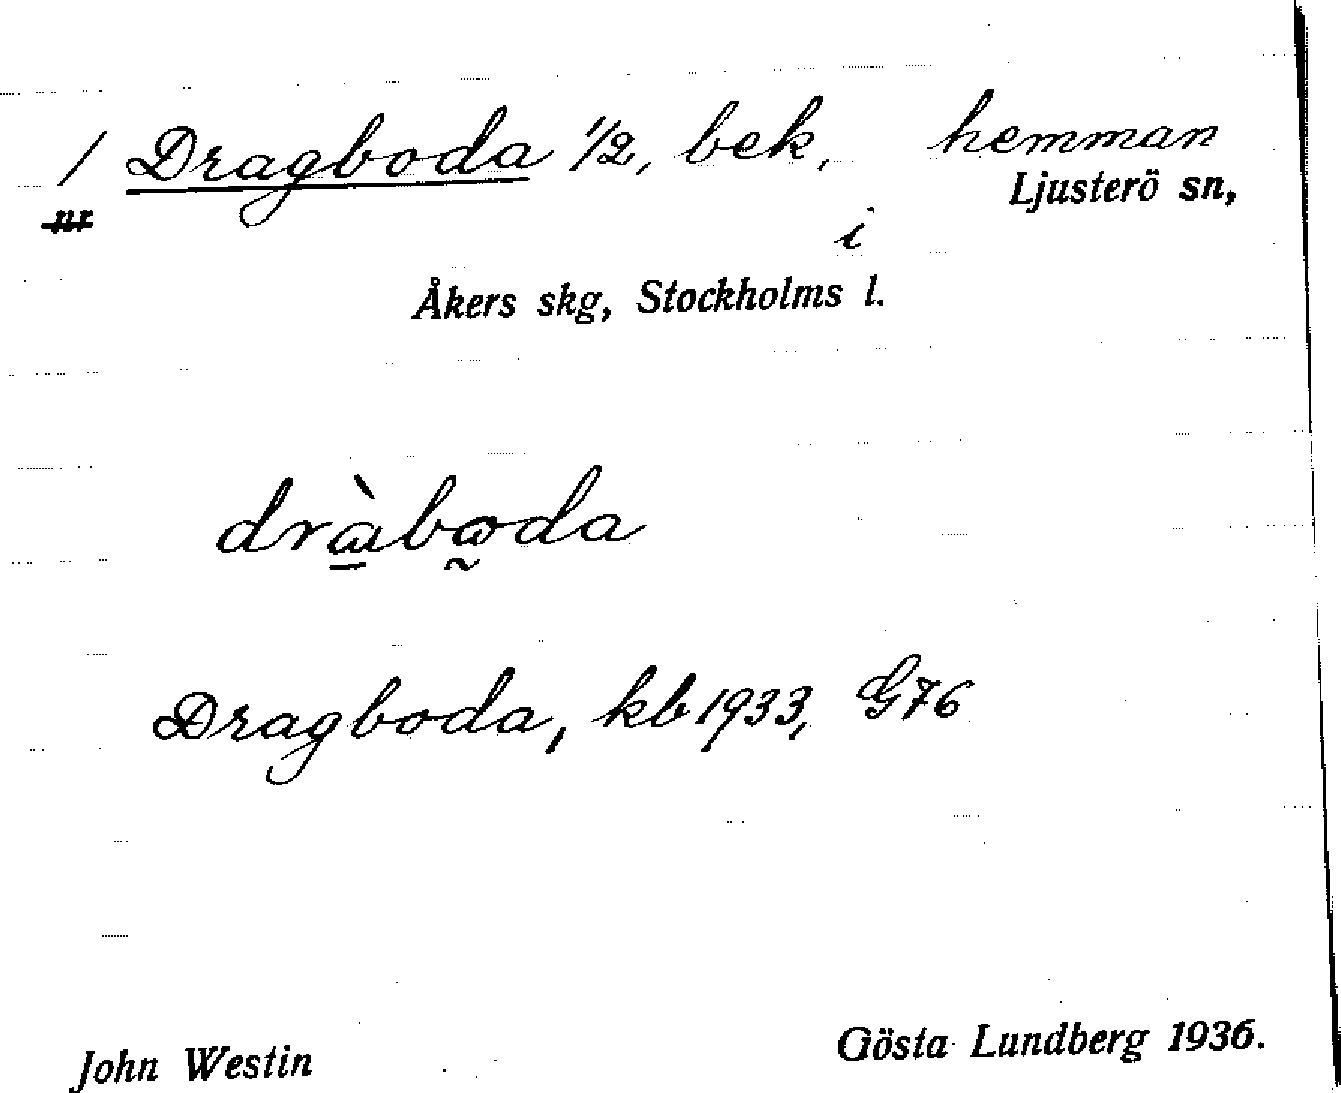 1 Dragboda 1/2, bek, hemman
nr i Ljusterö sn,
Åkers skg, Stockholms l.
dràboda
Dragboda, kb 1933, G76
John Westin Gösta Lundberg 1936.